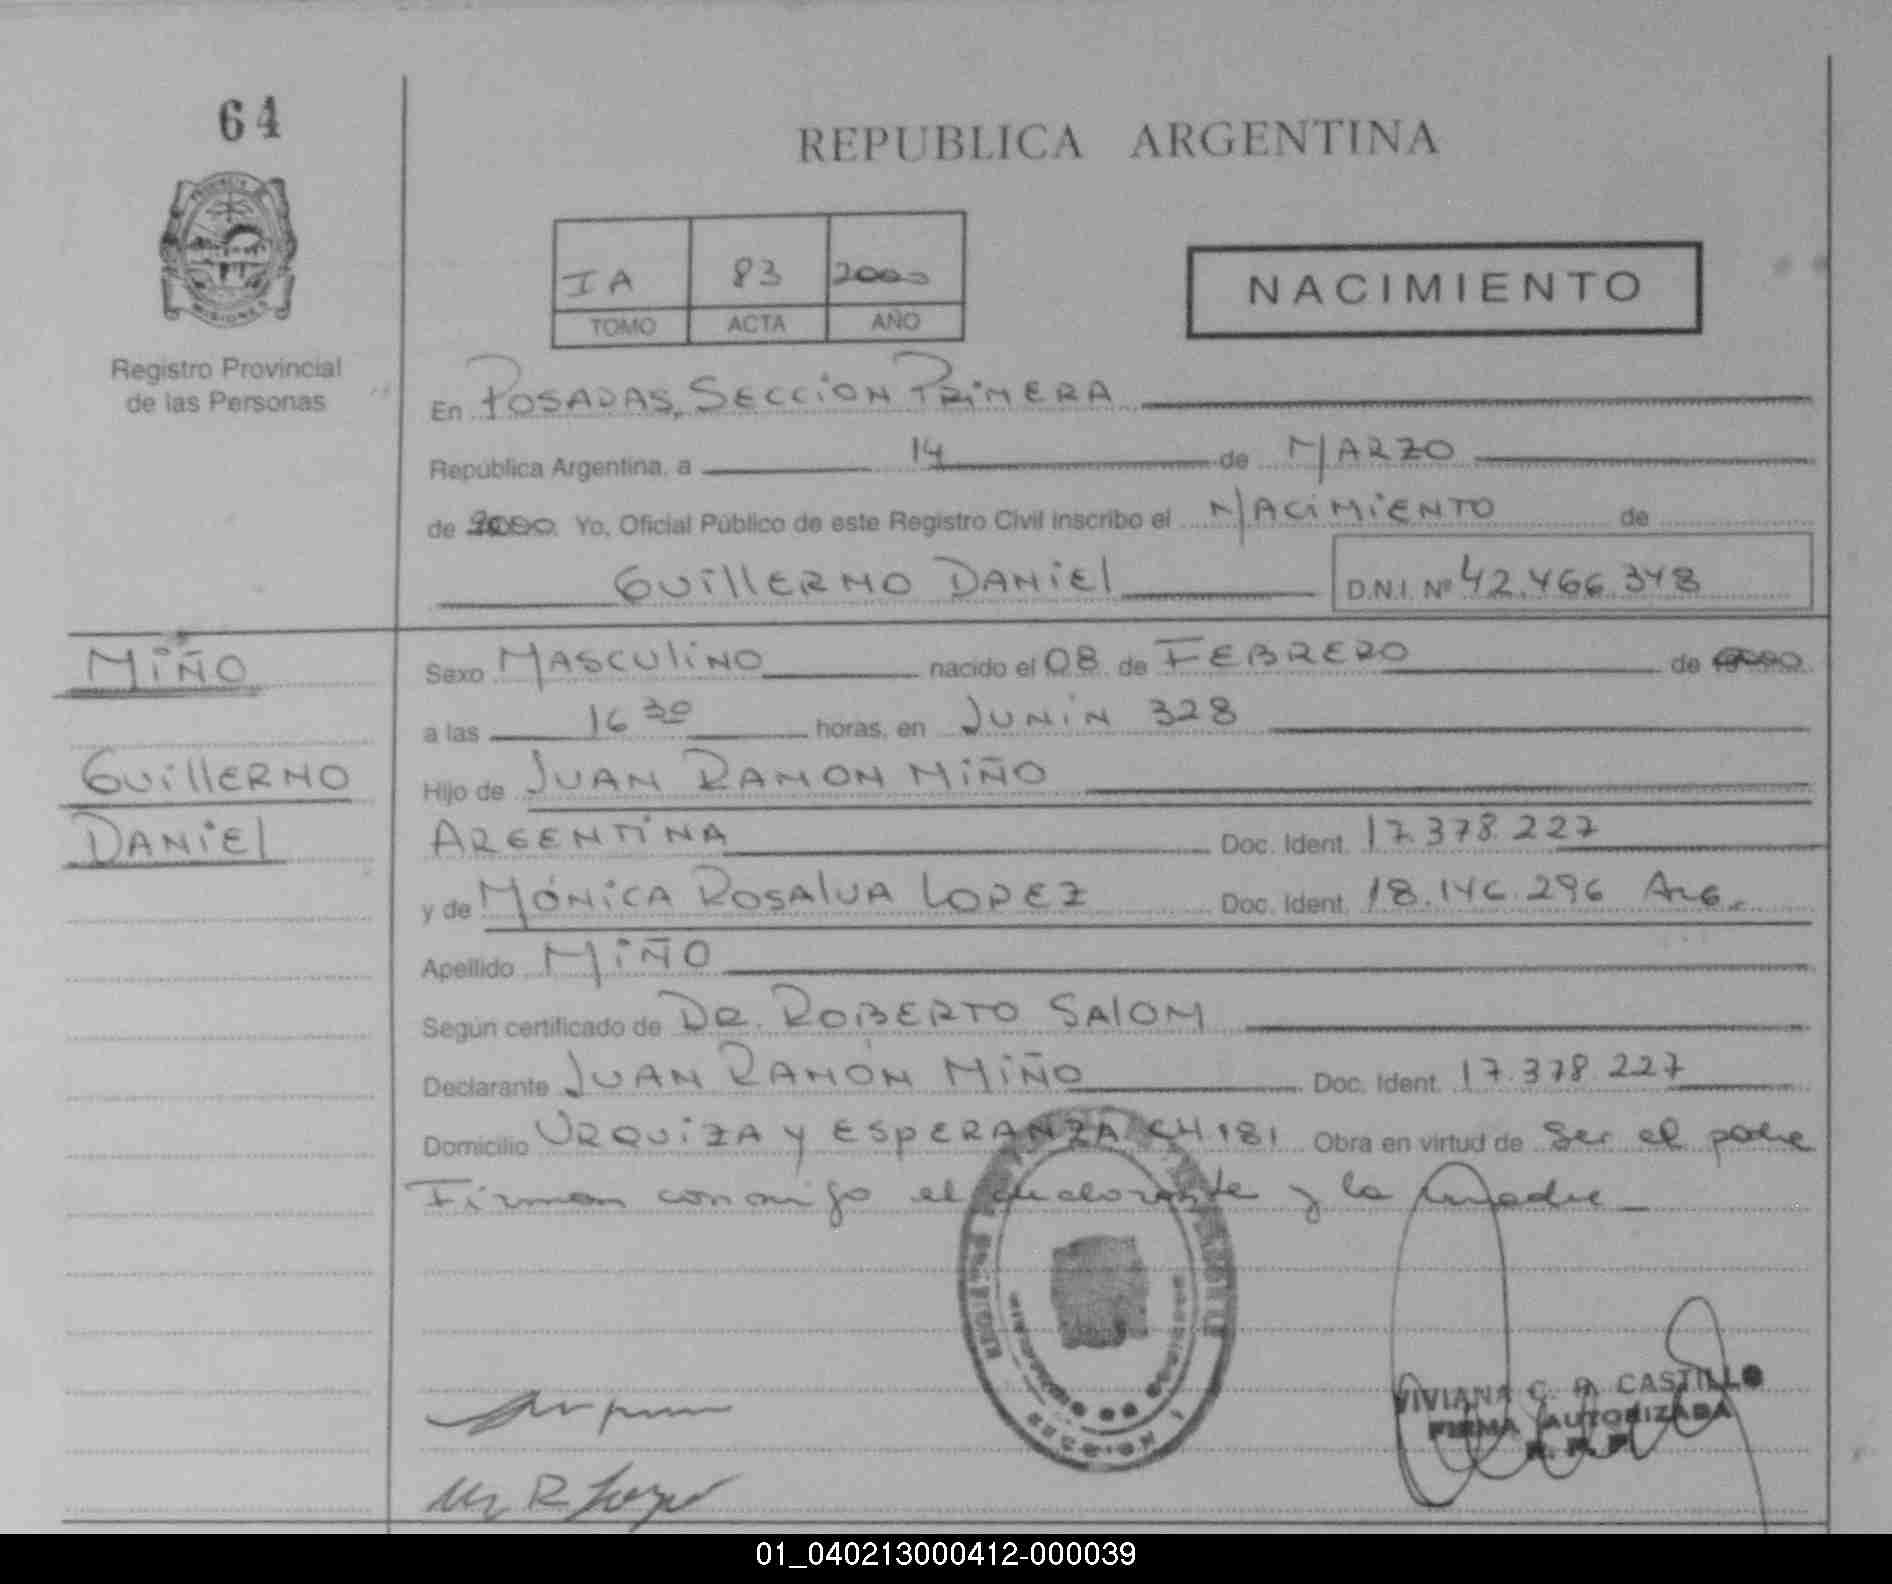 64
REPUBLICA ARGENTINA
IA 83 2000
TOMO ACTA AÑO
NACIMIENTO
Registro Provincial
de las Personas
En POSADAS, SECCION PRIMERA
República Argentina, a 14 de MARZO
de 2000 Yo, Oficial Público de este Registro Civil inscribo el NACIMIENTO de
GUILLERMO DANIEL D.N.I. Nº 42.466.348
MIÑO
GUILLERMO
DANIEL
Sexo MASCULINO nacido el 08 de FEBRERO de
a las 16 30 horas, en JUNIN 328
Hijo de JUAN RAMON MIÑO
ARGENTINA Doc. Ident. 17.378.227
y de MÓNICA ROSALVA LOPEZ Doc. Ident. 18.146.296 ARG.
Apellido MIÑO
Según certificado de DR. ROBERTO SALOM
Declarante JUAN RAMÓN MIÑO Doc. Ident. 17.378.227
Domicilio URQUIZA Y ESPERANZA CH 181 Obra en virtud de Ser el padre
Firman conmigo el declarante y la madre
VIVIANA C. CASTILLO
FIRMA AUTORIZADA
01_040213000412-000039